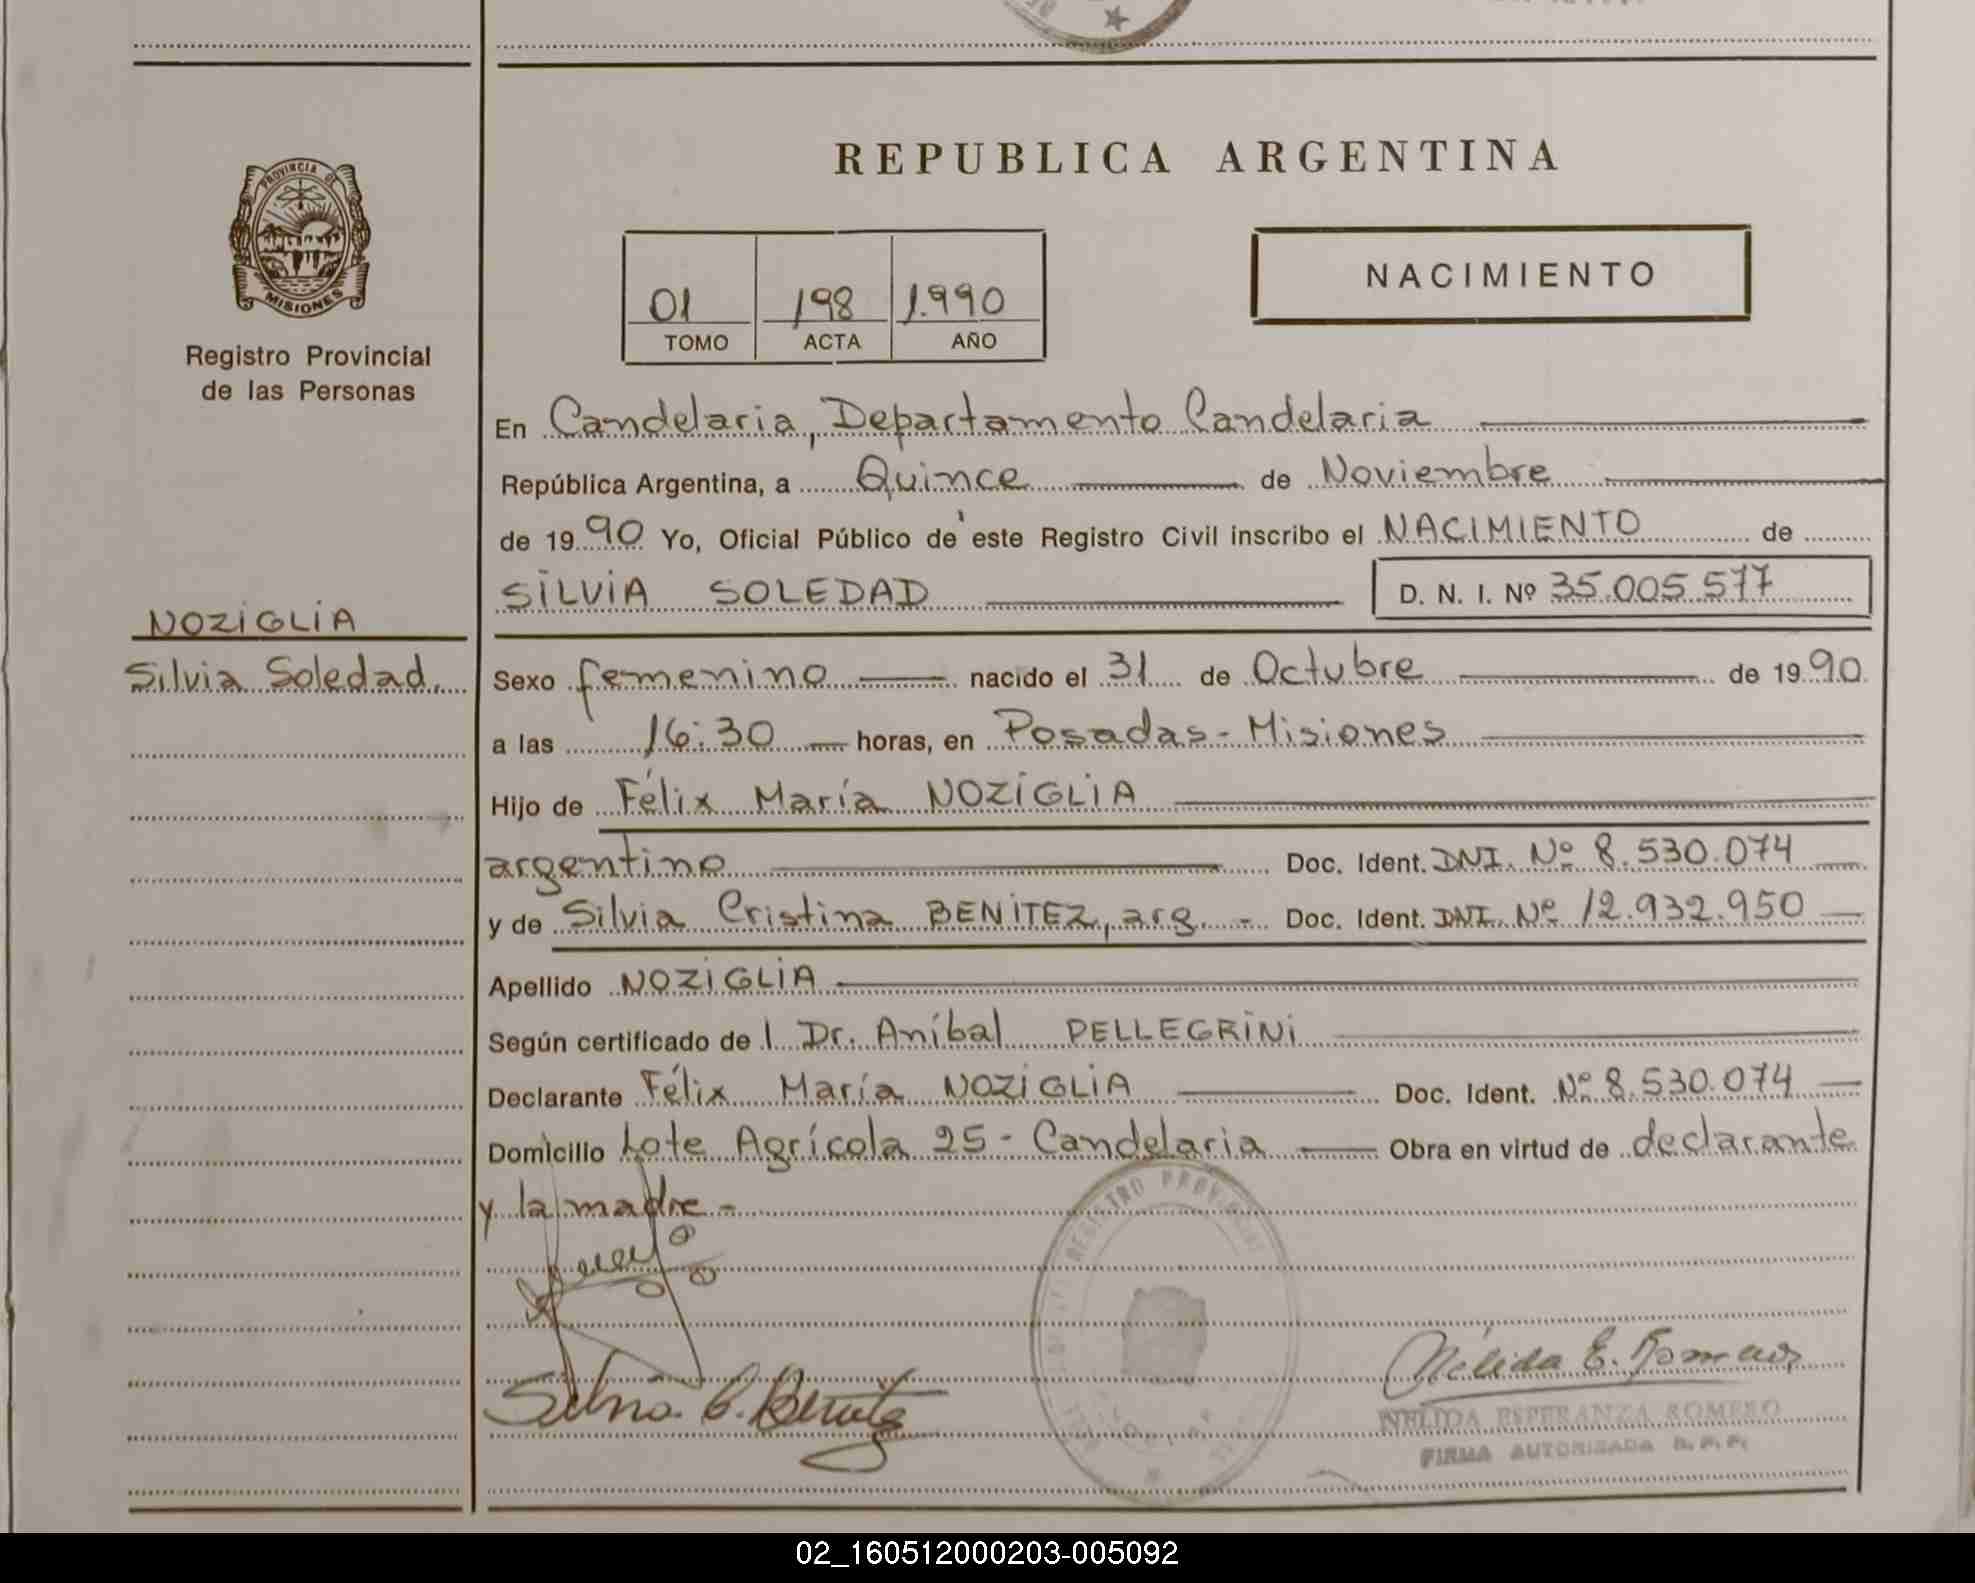 REPUBLICA ARGENTINA
PROVINCIA DE
MISIONES
Registro Provincial
de las Personas
01 198 1.990
TOMO ACTA AÑO
NACIMIENTO
En Candelaria, Departamento Candelaria
República Argentina, a Quince de Noviembre
de 1990 Yo, Oficial Público de este Registro Civil inscribo el NACIMIENTO de
SILVIA SOLEDAD D. N. I. Nº 35.005.577
NOZIGLIA
Silvia Soledad.
Sexo femenino nacido el 31 de Octubre de 1990
a las 16:30 horas, en Posadas - Misiones
Hijo de Félix María NOZIGLIA
argentino Doc. Ident. DNI. Nº 8.530.074
y de Silvia Cristina BENITEZ, arg. - Doc. Ident. DNI. Nº 12.932.950
Apellido NOZIGLIA
Según certificado de l Dr. Aníbal PELLEGRINI
Declarante Félix María NOZIGLIA Doc. Ident. Nº 8.530.074
Domicilio Lote Agrícola 25 - Candelaria Obra en virtud de declarante
y la madre -
REGISTRO PROVINCIAL
Silvia C. Benitez
Nélida E. Romero
NELIDA ESPERANZA ROMERO
FIRMA AUTORIZADA R. P. P.
02_160512000203-005092